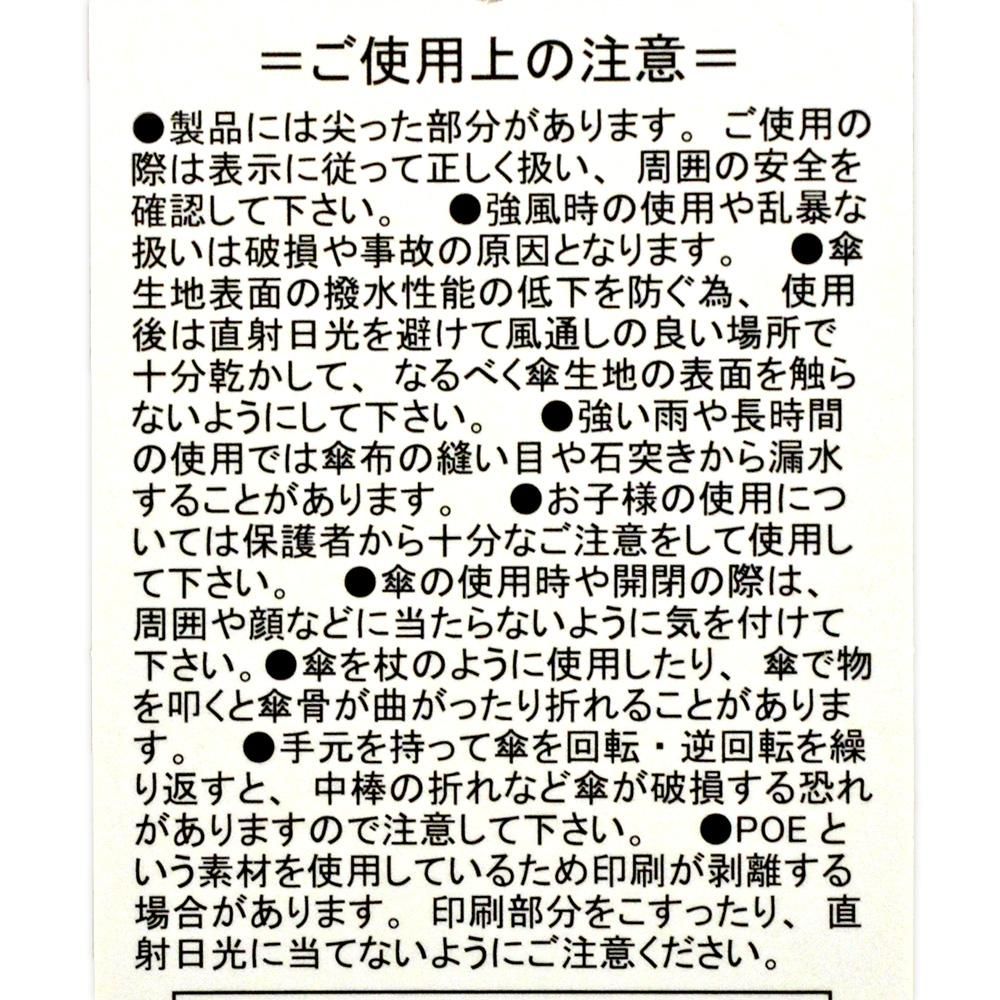 ＝ご使用上の注意＝
●製品には尖った部分があります。ご使用の
際は表示に従って正しく扱い、周囲の安全を
確認して下さい。　●強風時の使用や乱暴な
扱いは破損や事故の原因となります。　●傘
生地表面の撥水性能の低下を防ぐ為、使用
後は直射日光を避けて風通しの良い場所で
十分乾かして、なるべく傘生地の表面を触ら
ないようにして下さい。　●強い雨や長時間
の使用では傘布の縫い目や石突きから漏水
することがあります。　●お子様の使用につ
いては保護者から十分なご注意をして使用し
て下さい。　●傘の使用時や開閉の際は、
周囲や顔などに当たらないように気を付けて
下さい。●傘を杖のように使用したり、傘で物
を叩くと傘骨が曲がったり折れることがありま
す。　●手元を持って傘を回転・逆回転を繰
り返すと、中棒の折れなど傘が破損する恐れ
がありますので注意して下さい。　●POE と
いう素材を使用しているため印刷が剥離する
場合があります。印刷部分をこすったり、直
射日光に当てないようにご注意ください。